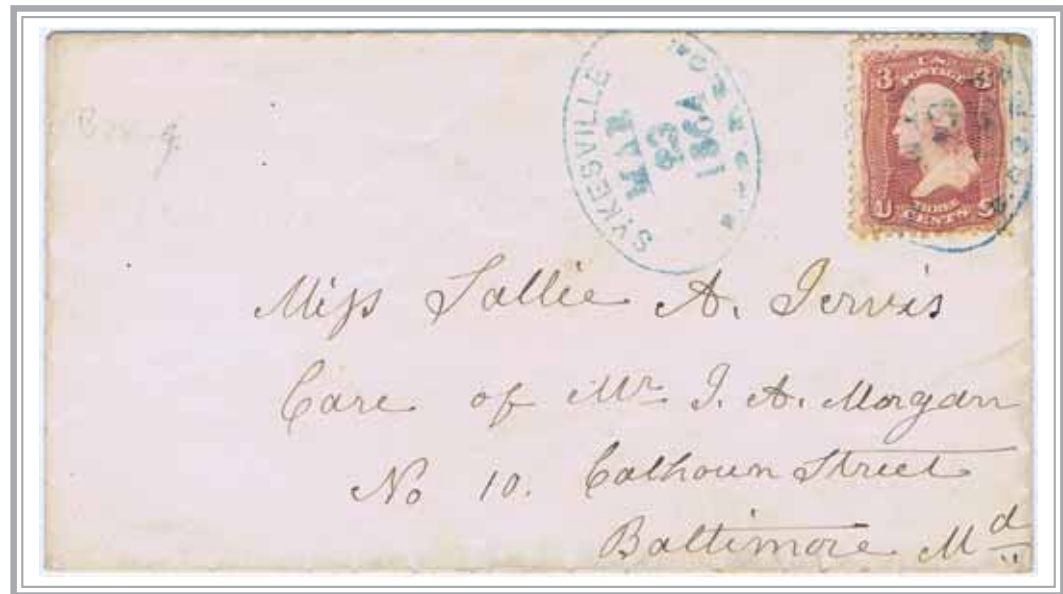 SYKESVILLE
MAR
23
1864
3 U.S. 3
POSTAGE
THREE
CENTS
Miss Sallie A. Jervis
Care of Mr J. A. Morgan
No 10. Calhoun Street
Baltimore Md